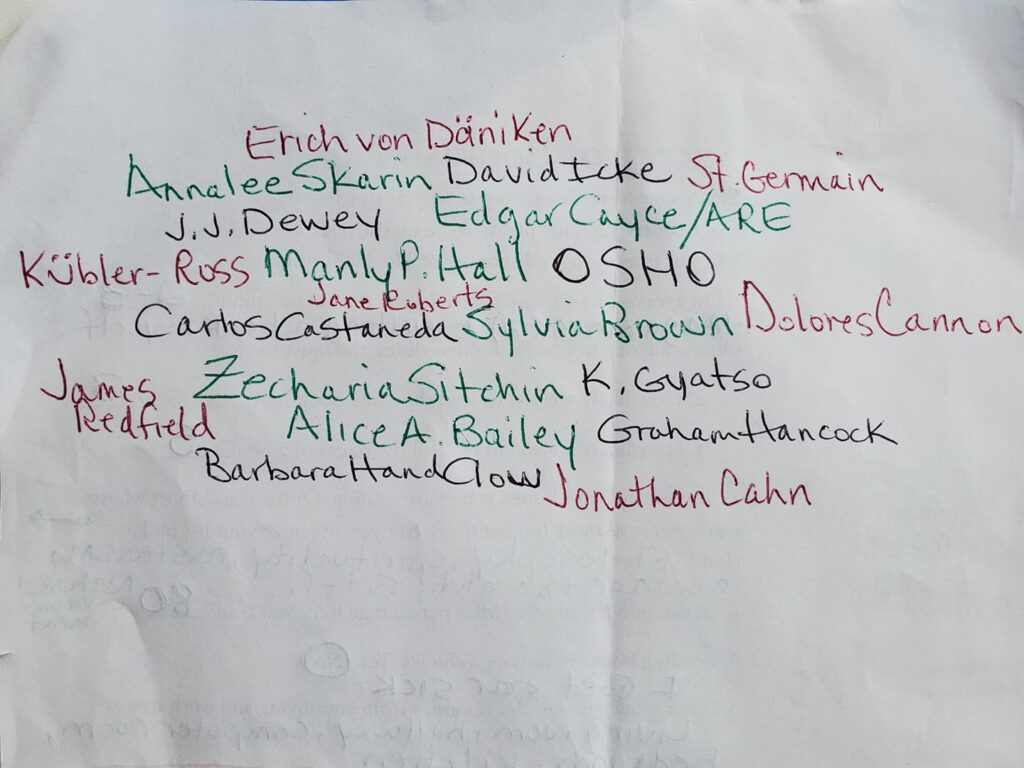 Erich von Däniken
Annalee Skarin David Icke St. Germain
J.J. Dewey Edgar Cayce/ARE
Kübler-Ross Manly P. Hall OSHO
Jane Roberts
Carlos Castaneda Sylvia Brown Dolores Cannon
James Zecharia Sitchin K. Gyatso
Redfield Alice A. Bailey Graham Hancock
Barbara Hand Clow Jonathan Cahn